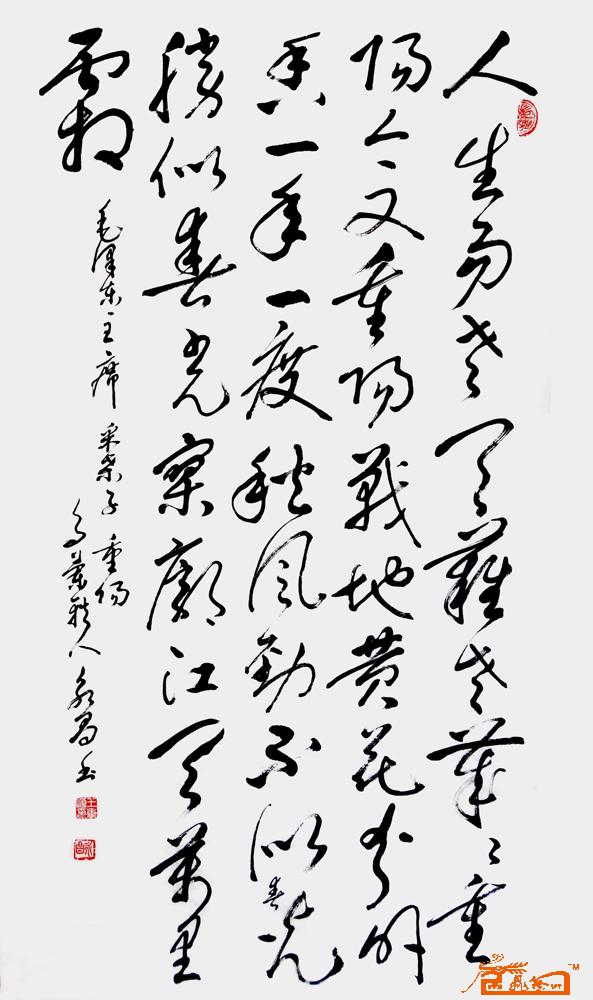 人生易老天難老歲〻重
陽今又重陽戰地黃花分外
香一年一度秋風勁不似春光
勝似春光寥廓江天萬里
霜
毛澤東主席 采桑子 重陽
人永昌书